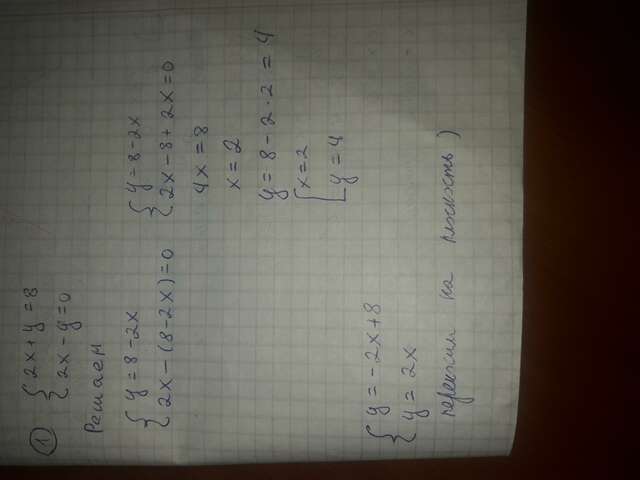 ① { 2x + y = 8
{ 2x - y = 0
Решаем
{ y = 8 - 2x
{ 2x - (8 - 2x) = 0
{ y = 8 - 2x
{ 2x - 8 + 2x = 0
4x = 8
x = 2
y = 8 - 2 · 2 = 4
[ x = 2
[ y = 4
{ y = -2x + 8
{ y = 2x
на плоскость )